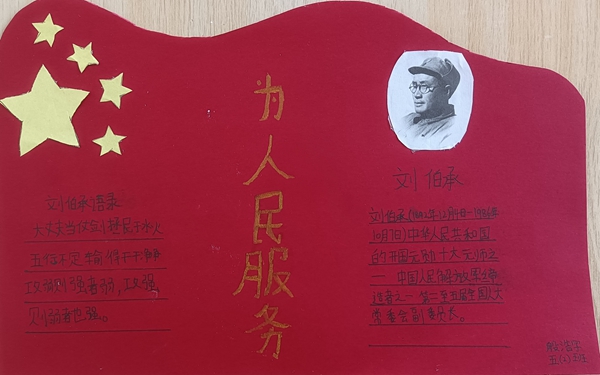 刘伯承语录
大丈夫当仗剑拯民于水火
五行不定 输得干干净
则强者弱,
强
则弱者也强。
为人民服务
刘伯承
刘伯承(1892年12月4日-1986年
10月7日)中华人民共和国
的开国元勋十大元帅之
一 中国人民解放军缔
造者之一 第二至五届全国人大
常委会副委员长。
五(2)班